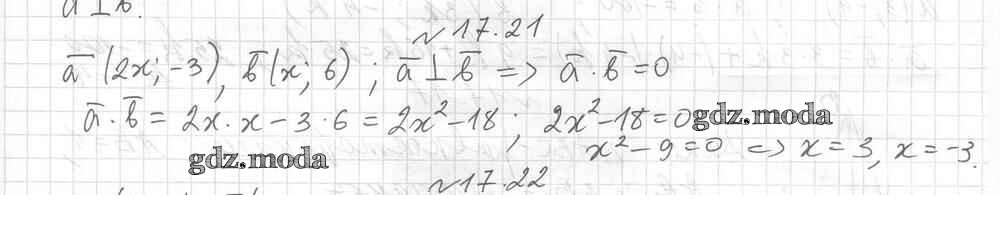 a ⊥ b.
№ 17.21
a̅ (2x; -3), b̅ (x; 6) ; a̅ ⊥ b̅ => a̅ · b̅ = 0
a̅ · b̅ = 2x · x - 3 · 6 = 2x² - 18 ; 2x² - 18 = 0 gdz.moda
gdz.moda x² - 9 = 0 => x = 3, x = -3.
№ 17.22